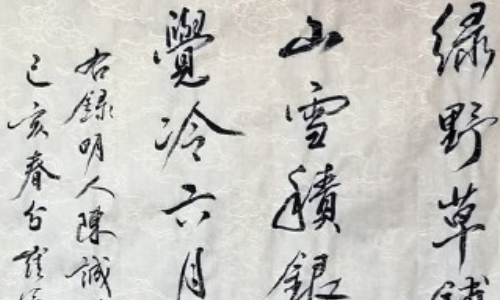 绿野草鋪
山雪積銀
覺冷六月
右録明人陳誠
己亥春分